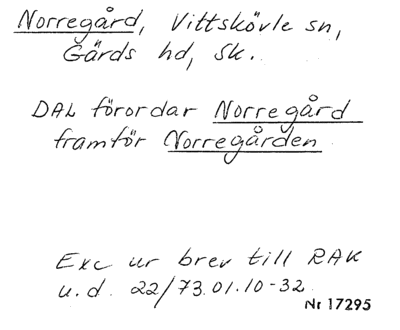 Norregård, Vittskövle sn,
Gärds hd, Sk.
DAL förordar Norregård
framför Norregården
Exc ur brev till RAK
u.d. 22/73.01.10-32
Nr 17295